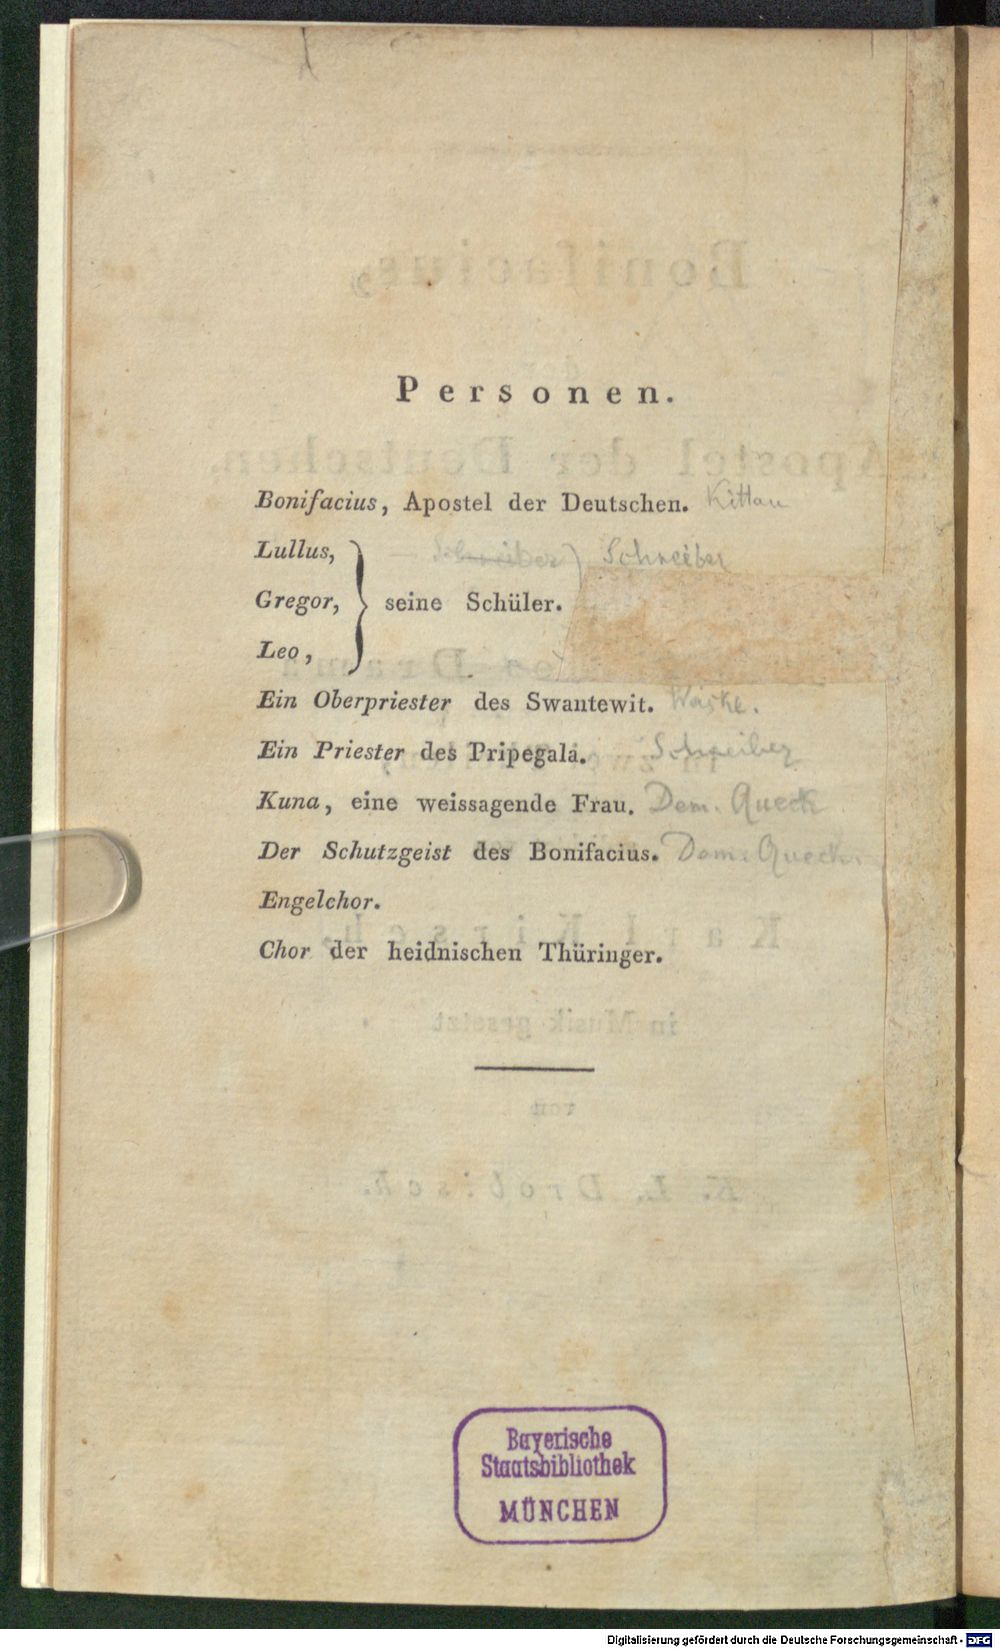 Personen.
Bonifacius, Apostel der Deutschen. Kittan
Lullus, Schreiber) Schreiber
Gregor, } seine Schüler.
Leo,
Ein Oberpriester des Swantewit.
Ein Priester des Pripegala. Schreiber
Kuna, eine weissagende Frau. Dem. Queck
Der Schutzgeist des Bonifacius. Dem. Queck
Engelchor.
Chor der heidnischen Thüringer.
Bayerische
Staatsbibliothek
MÜNCHEN
Digitalisierung gefördert durch die Deutsche Forschungsgemeinschaft - DFG